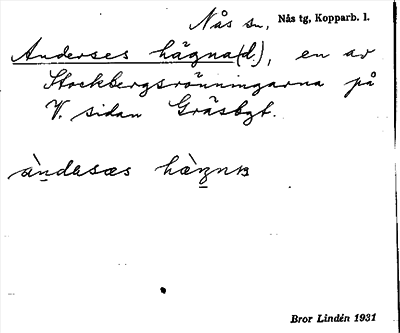 Nås sn, Nås tg, Kopparb. l.
Anderses hägna(d.), en av
Stockbergsrönningarna på
V. sidan Gräsbgt.
Bror Lindén 1931